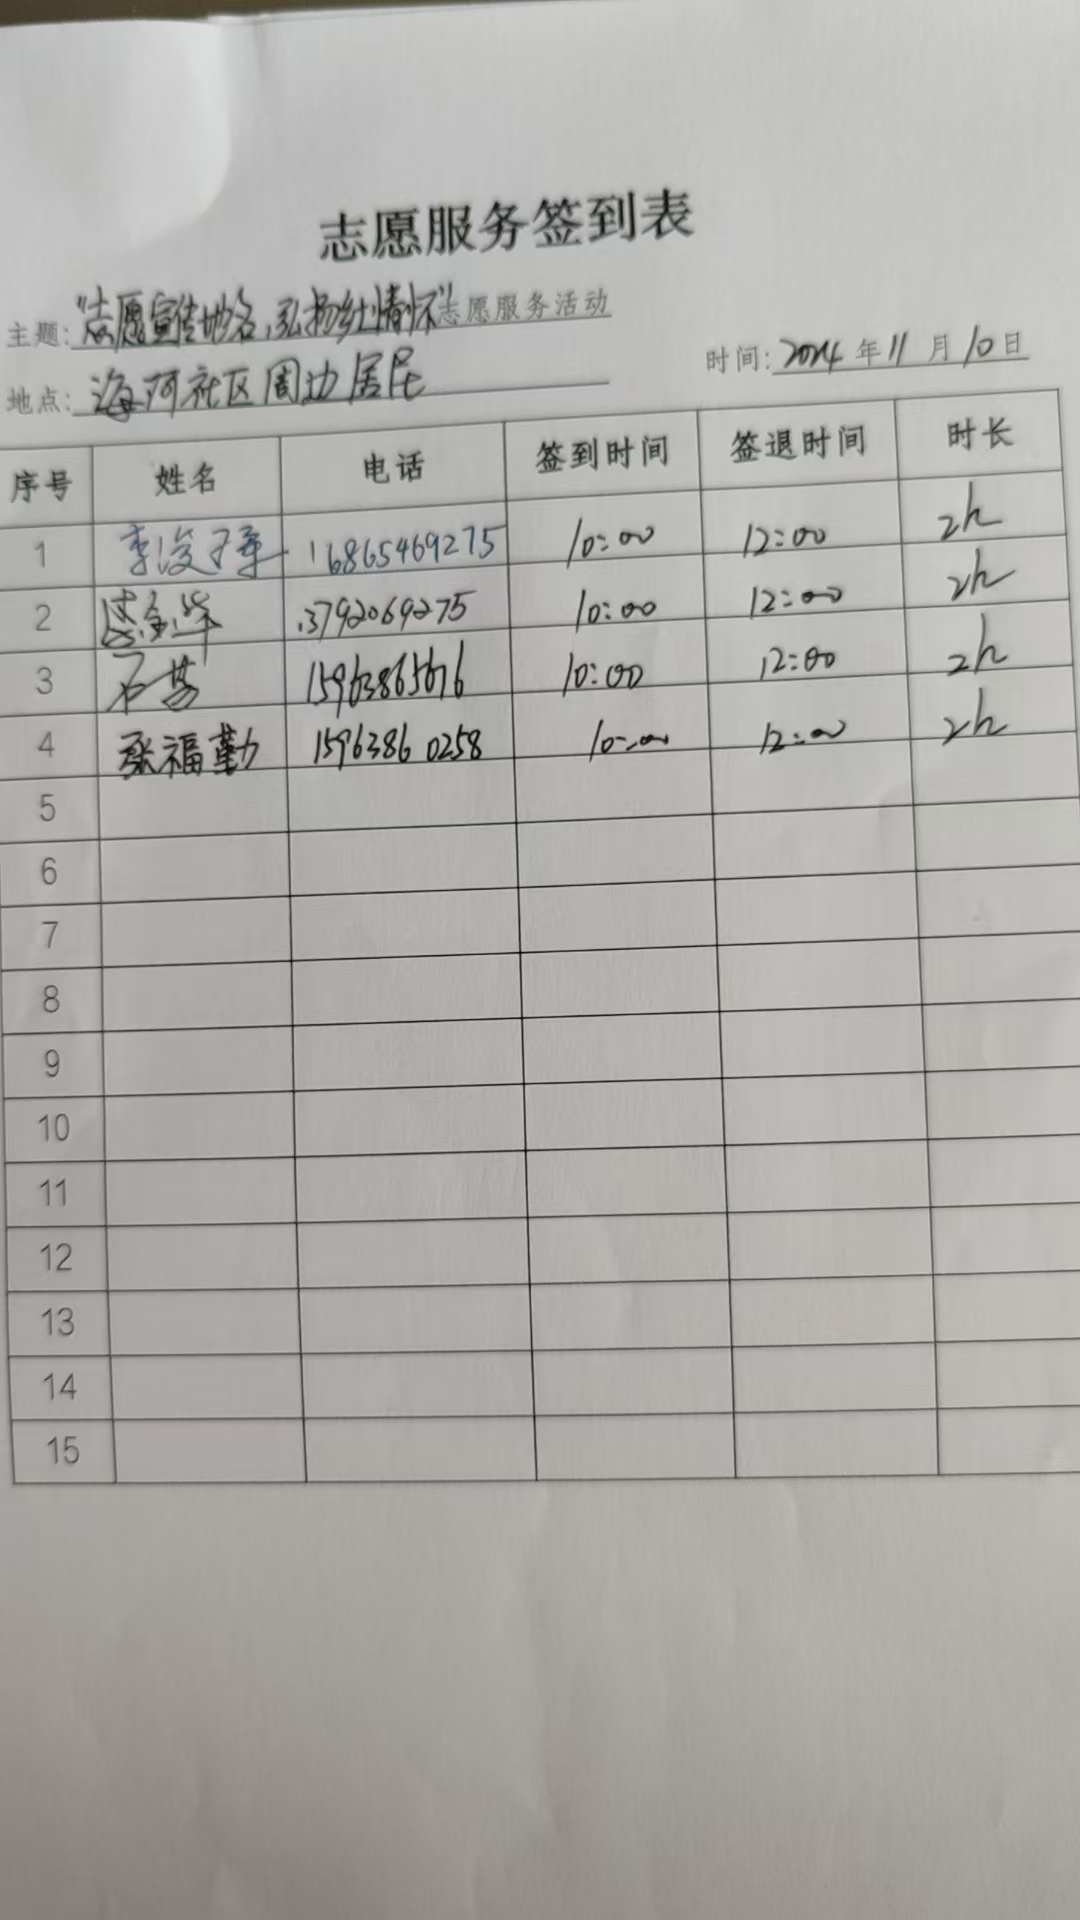 志愿服务签到表
主题:"志愿宣传地名,弘扬乡土情怀"志愿服务活动
时间:2024年11月10日
地点:海河社区周边居民
序号 姓名 电话 签到时间 签退时间 时长
1 李俊 16865469275 10:00 12:00 2h
2 13792069275 10:00 12:00 2h
3 石 10:00 12:00 2h
4 张福勤 15963860258 10:00 12:00 2h
5
6
7
8
9
10
11
12
13
14
15